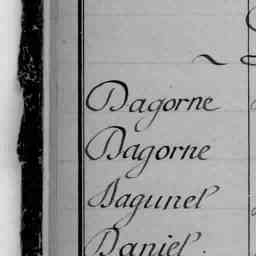 Dagorne
Dagorne
Dagunel
Daniel.